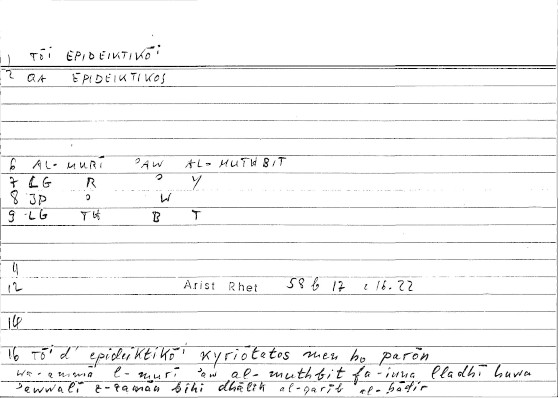 1 TŌI EPIDEIKTIKŌI
2 QA EPIDEIKTIKOS
6 AL-MURĪ ʾAW AL-MUTHBIT
7 LG R ʾ Y
8 JP ʾ W
9 LG TH B T
11
12 Arist Rhet 58 b 17 : 16.22
14
16 Tōi d' epideiktikōi kyriōtatos men ho parōn
wa-ammā l-murī ʾaw al-muthbit fa-inna lladhī huwa
ʾawwalī z-zamān bihi dhālik al-qarīb al-ḥāḍir